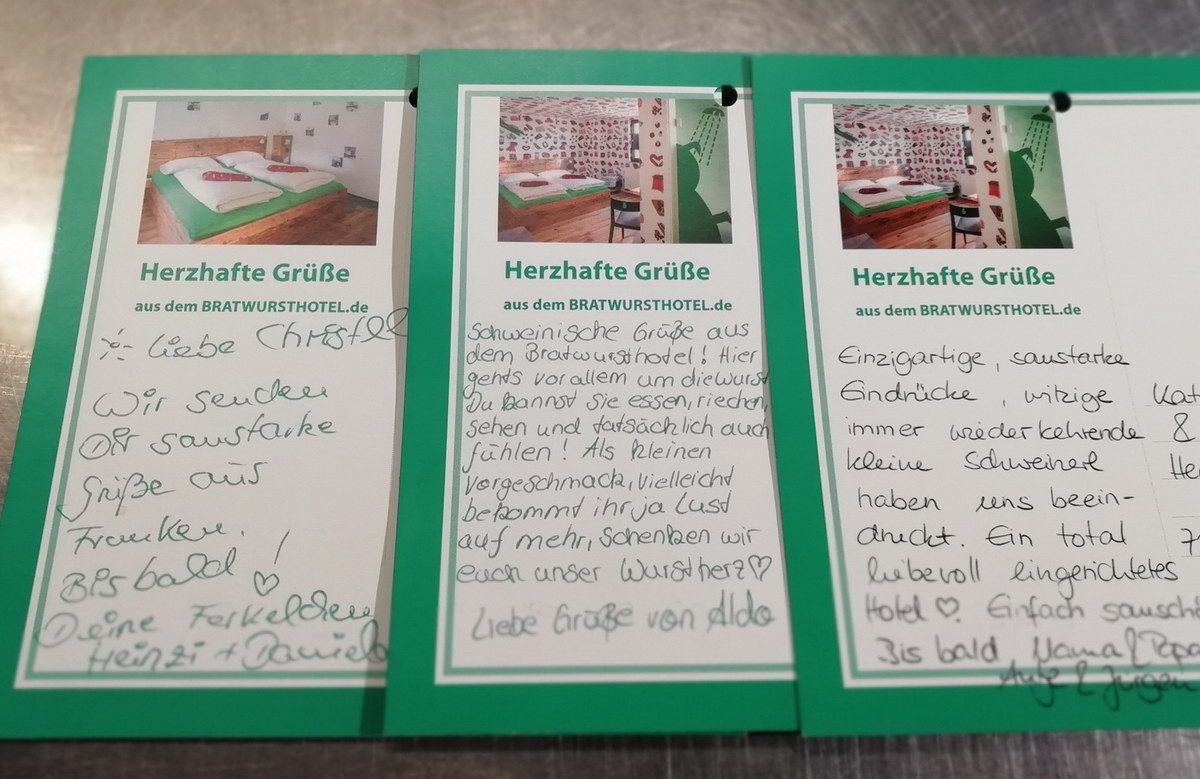 Herzhafte Grüße
aus dem BRATWURSTHOTEL.de
Liebe Christel
Wir senden
Dir saustarke
Grüße aus
Franken.
Bis bald!
Deine Ferkelchen
Heinzi + Daniela
Herzhafte Grüße
aus dem BRATWURSTHOTEL.de
Schweinische Grüße aus
dem Bratwursthotel! Hier
gehts vor allem um die Wurst
Du kannst sie essen, riechen,
sehen und tatsächlich auch
fühlen! Als kleinen
Vorgeschmack, vielleicht
bekommt ihr ja Lust
auf mehr, schenken wir
euch unser Wurstherz♡
Liebe Grüße von Aldo
Herzhafte Grüße
aus dem BRATWURSTHOTEL.de
Einzigartige, saustarke
Eindrücke, witzige
immer wiederkehrende
kleine Schweinerl
haben uns beein-
druckt. Ein total
liebevoll eingerichtetes
Hotel ♡. Einfach sausch
Bis bald Mama & Papa
Antje & Jürgen
Kat
8
He
7